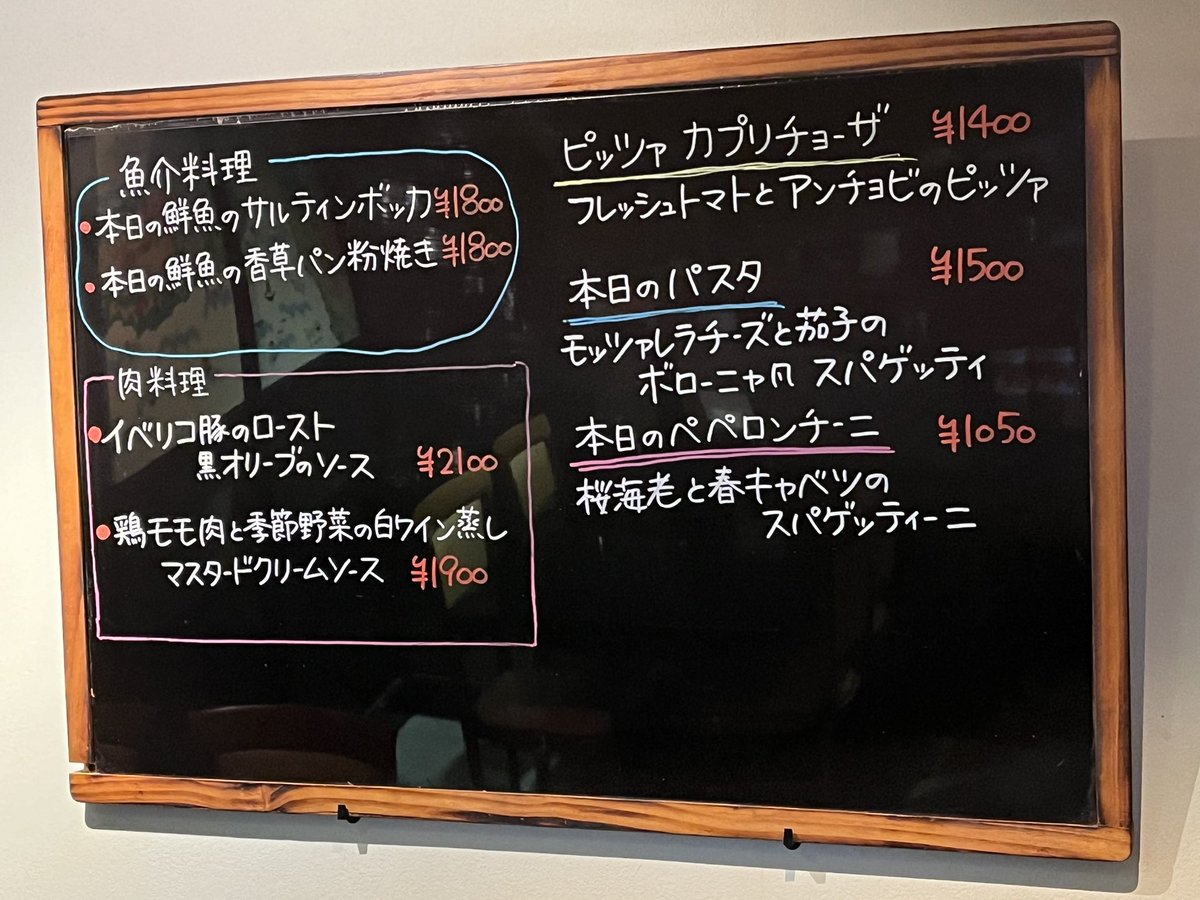 魚介料理
・本日の鮮魚のサルティンボッカ ¥1800
・本日の鮮魚の香草パン粉焼き ¥1800
肉料理
・イベリコ豚のロースト
黒オリーブのソース ¥2100
・鶏モモ肉と季節野菜の白ワイン蒸し
マスタードクリームソース ¥1900
ピッツァ カプリチョーザ ¥1400
フレッシュトマトとアンチョビのピッツァ
本日のパスタ ¥1500
モッツァレラチーズと茄子の
ボローニャ風 スパゲッティ
本日のペペロンチーニ ¥1050
桜海老と春キャベツの
スパゲッティーニ